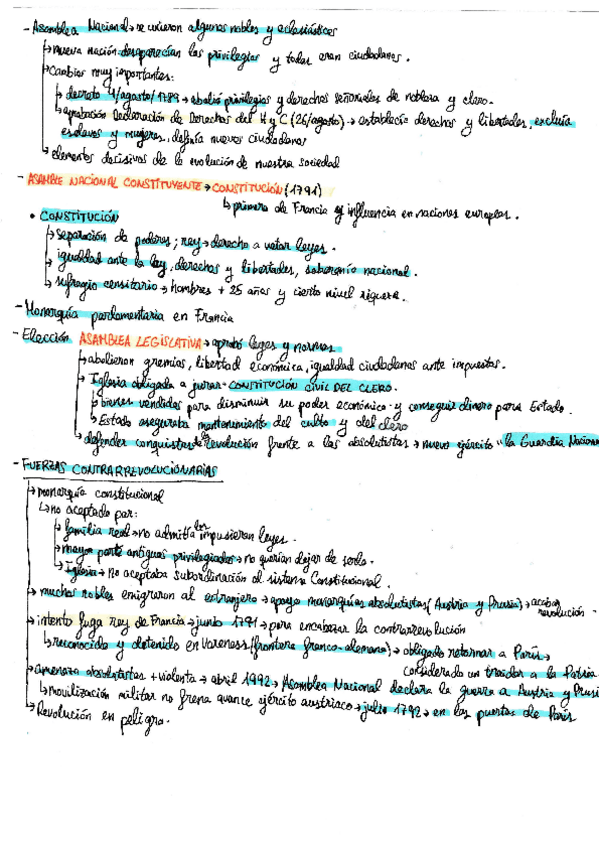 - Asamblea Nacional → se unieron algunos nobles y eclesiásticos
↳ nueva nación: desaparecían los privilegios y todos eran ciudadanos.
↳ Cambios muy importantes:
↳ decreto 4/agosto/1789 → abolió privilegios y derechos señoriales de nobleza y clero.
↳ aprobación Declaración de Derechos del H y C (26/agosto) → establecía derechos y libertades, excluía
esclavos y mujeres, definía nuevos ciudadanos
↳ elementos decisivos de la evolución de nuestra sociedad
- ASAMBLE NACIONAL CONSTITUYENTE → CONSTITUCIÓN (1791)
↳ primera de Francia y influencia en naciones europeas.
• CONSTITUCIÓN
↳ separación de poderes; rey → derecho a vetar leyes.
↳ igualdad ante la ley, derechos y libertades, soberanía nacional.
↳ sufragio censitario → hombres + 25 años y cierto nivel riqueza.
- Monarquía parlamentaria en Francia
- Elección ASAMBLEA LEGISLATIVA → aprobó leyes y normas
↳ abolieron gremios, libertad económica, igualdad ciudadanos ante impuestos.
↳ Iglesia obligada a jurar CONSTITUCIÓN CIVIL DEL CLERO.
↳ bienes vendidos para disminuir su poder económico y conseguir dinero para Estado.
↳ Estado aseguraba mantenimiento del culto y del clero
↳ defender conquistas de la revolución frente a los absolutistas → nuevo ejército "la Guardia Naciona
- FUERZAS CONTRARREVOLUCIONARIAS
↳ monarquía constitucional
↳ no aceptada por:
↳ familia real → no admitía les impusieran leyes.
↳ mayor parte antiguos privilegiados → no querían dejar de serlo.
↳ Iglesia → no aceptaba subordinación al sistema Constitucional.
↳ muchos nobles emigraron al extranjero → apoyo monarquías absolutistas (Austria y Prusia) → acabar
revolución.
↳ intento fuga rey de Francia → junio 1791 → para encabezar la contrarrevolución
↳ reconocido y detenido en Vareness (frontera franco-alemana) → obligado retornar a París →
considerado un traidor a la Patria
↳ amenaza absolutistas + violenta → abril 1992 → Asamblea Nacional declara la guerra a Austria y Prusi
↳ movilización militar no frena avance ejército austriaco → julio 1792 → en las puertas de París
↳ Revolución en peligro.